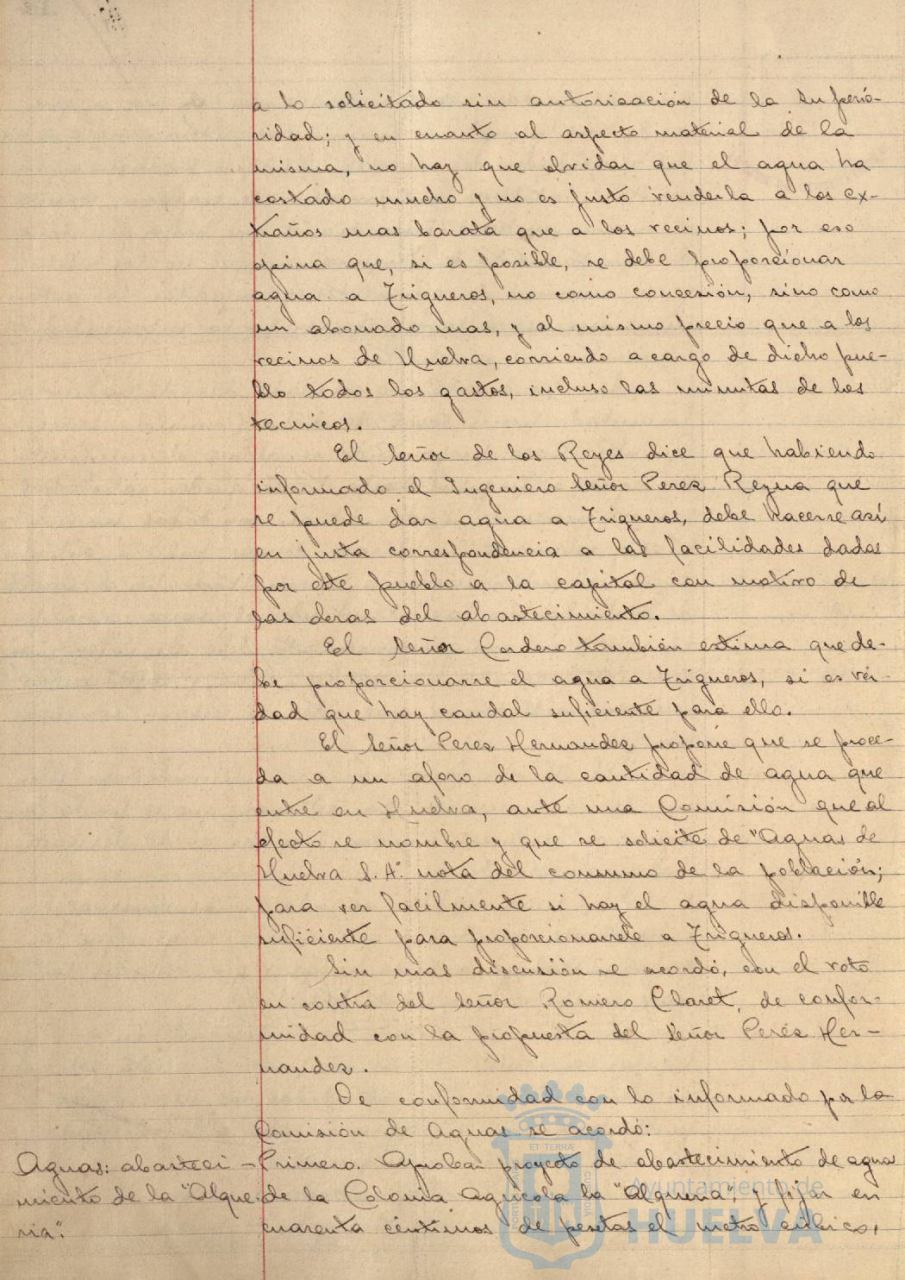 a lo solicitado sin autorización de la superio-
ridad; y en cuanto al aspecto material de la
misma, no hay que olvidar que el agua ha
costado mucho y no es justo venderla a los ex-
traños mas barata que a los vecinos; por eso
opina que, si es posible, se debe proporcionar
agua a Trigueros, no como concesión, sino como
un abonado mas, y al mismo precio que a los
vecinos de Huelva, corriendo a cargo de dicho pue-
blo todos los gastos, incluso las minutas de los
tecnicos.
El Señor de los Reyes dice que habiendo
informado el Ingeniero Señor Perez Reyna que
se puede dar agua a Trigueros, debe hacerse así
en justa correspondencia a las facilidades dadas
por este pueblo a la capital con motivo de
las obras del abastecimiento.
El Señor Cordero también estima que de-
be proporcionarse el agua a Trigueros, si es ver-
dad que hay caudal suficiente para ello.
El Señor Perez Hernandez propone que se proce-
da a un aforo de la cantidad de agua que
entre en Huelva, ante una Comisión que al
efecto se nombre y que se solicite de "Aguas de
Huelva S.A." nota del consumo de la población;
para ver facilmente si hay el agua disponible
suficiente para proporcionarsele a Trigueros.
Sin mas discusión se acordó, con el voto
en contra del Señor Romero Claret, de confor-
midad con la propuesta del Señor Peréz Her-
nandez.
De conformidad con lo informado por la
Comisión de Aguas se acordó:
Aguas: abasteci-
miento de la "Alque-
ria".
Primero. Aprobar proyecto de abastecimiento de agua
de la Colonia Agricola la "Alqueria", y fijar en
cuarenta céntimos de pesetas el metro cúbico,
Ayuntamiento de
HUELVA